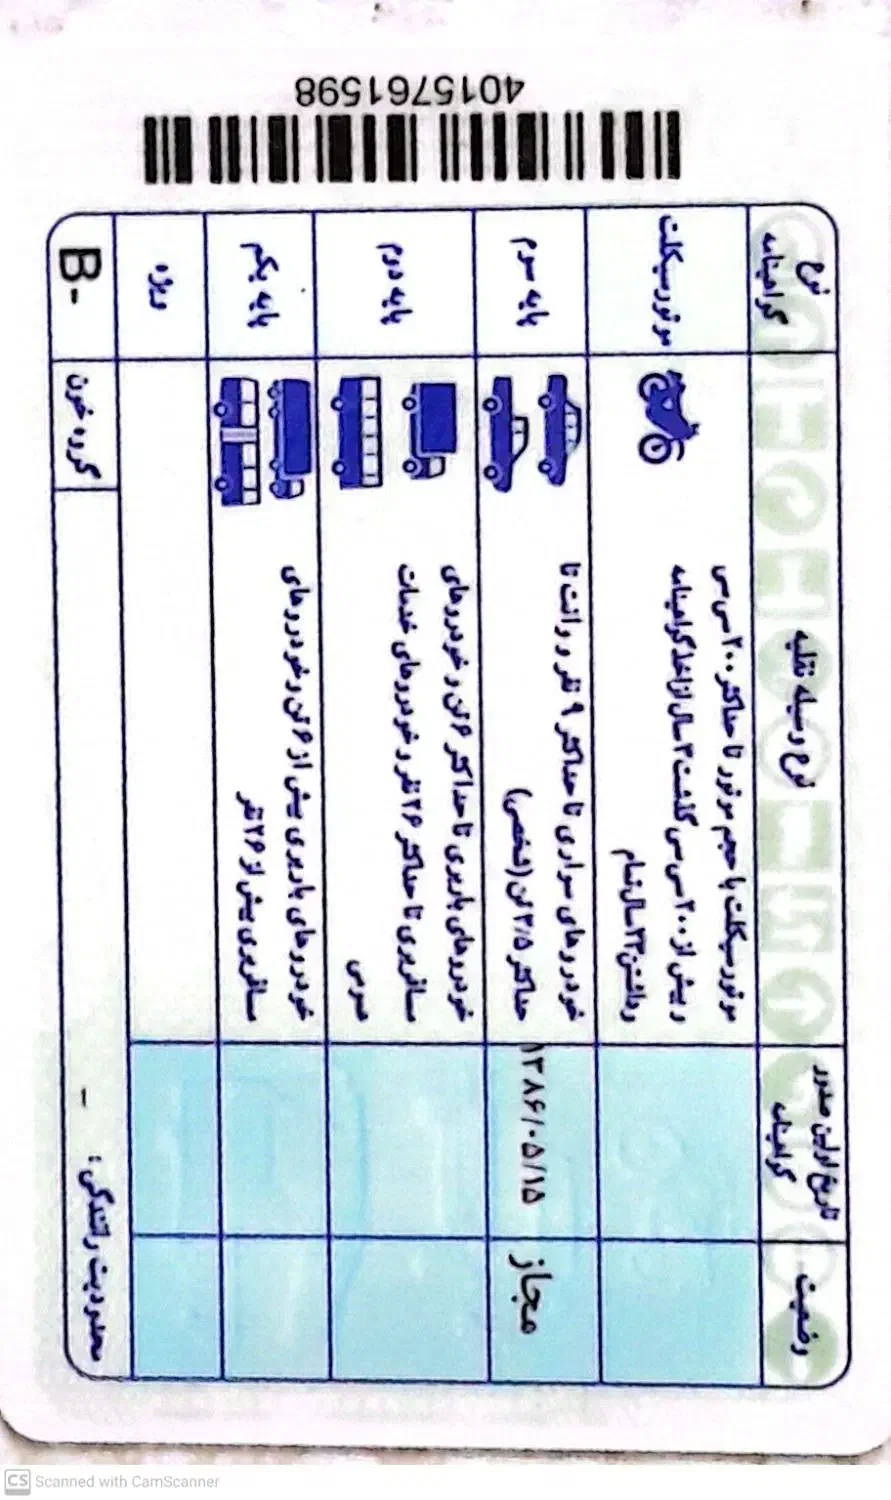 4015761598
نوع گواهینامه
نوع وسیله نقلیه
تاریخ اولین صدور گواهینامه
وضعیت
موتورسیکلت
موتورسیکلت با حجم موتور تا حداکثر ۲۰۰ سی سی
و بیش از ۲۰۰ سی سی گذشت ۲ سال از اخذ گواهینامه
و داشتن ۲۳ سال تمام
پایه سوم
خودروهای سواری تا حداکثر ۹ نفر و وانت تا
حداکثر ۳/۵ تن (شخصی)
۱۳۸۶/۰۵/۱۵
مجاز
پایه دوم
خودروهای باربری تا حداکثر ۶ تن و خودروهای
مسافربری تا حداکثر ۲۶ نفر و خودروهای خدمات
عمومی
پایه یکم
خودروهای باربری بیش از ۶ تن و خودروهای
مسافربری بیش از ۲۶ نفر
ویژه
B-
گروه خون
محدودیت رانندگی : -
CS Scanned with CamScanner